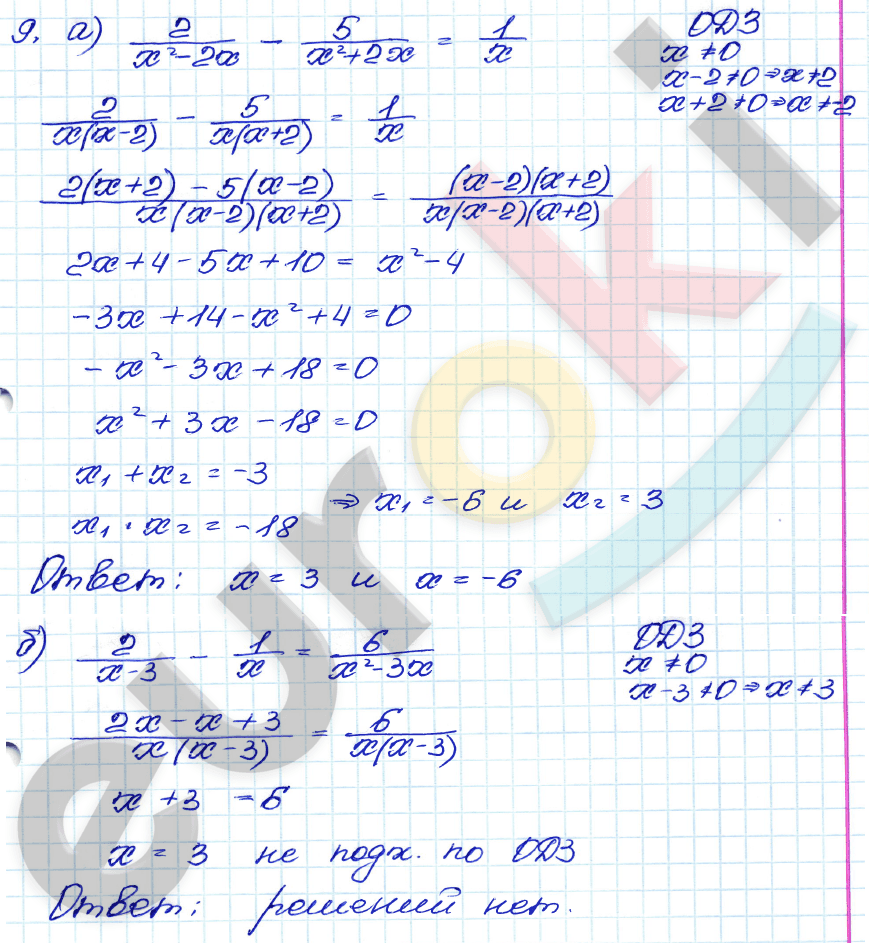 9. а) 2/(x²-2x) - 5/(x²+2x) = 1/x
ОДЗ
x ≠ 0
x-2≠0 ⇒ x≠2
x+2≠0 ⇒ x≠-2
2/(x(x-2)) - 5/(x(x+2)) = 1/x
(2(x+2) - 5(x-2))/(x(x-2)(x+2)) = ((x-2)(x+2))/(x(x-2)(x+2))
2x+4-5x+10 = x²-4
-3x+14-x²+4=0
-x²-3x+18=0
x²+3x-18=0
x₁+x₂=-3
x₁·x₂=-18
⇒ x₁=-6 и x₂=3
Ответ: x=3 и x=-6
б) 2/(x-3) - 1/x = 6/(x²-3x)
ОДЗ
x ≠ 0
x-3≠0 ⇒ x≠3
(2x-x+3)/(x(x-3)) = 6/(x(x-3))
x+3 =6
x = 3 не подх. по ОДЗ
Ответ: решений нет.
euroki